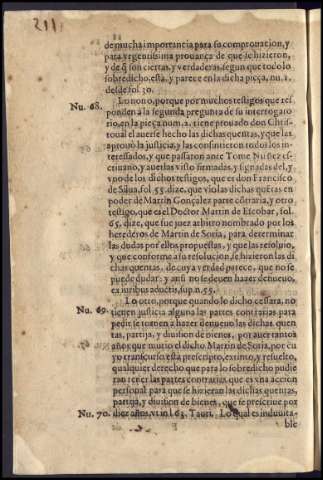 211
de mucha importancia para su comprouacion, y
para vrgentissima prouança de que se hizieron,
y de q̃ son ciertas, y verdaderas, segun que todo lo
sobredicho, està, y parece en la dicha pieça, nu. 1.
desde fol. 30.
Nu. 68. Lo nono, porque por muchos testigos que res
ponden a la segunda pregunta de su interrogato
rio, en la pieça num. 2. tiene prouado don Chris-
toual el auerse hecho las dichas quentas, y que las
aprouò la justicia, y las consintieron todos los in-
teressados, y que passaron ante Tome Nuñez es-
criuano, y auerlas visto firmadas, y signadas del, y
vno de los dichos testigos, que es don Francisco
de Silua, fol. 55. dize, que vio las dichas quẽtas en
poder de Martin Gonçalez parte cõtraria, y otro
testigo, que es el Doctor Martin de Escobar, fol.
65. dize, que fue juez arbitro nombrado por los
herederos de Martin de Soria, para determinar
las dudas por ellos propuestas, y que las resoluio,
y que conforme a su resolucion, se hizieron las di
chas quentas, de cuya verdad parece, que no se
puede dudar: y assi no se deuen hazer de nueuo,
ex iuribus adductis, sup. n. 55.
Nu. 69. Lo otro, porque quando lo dicho cessara, no
tienen justicia alguna las partes contrarias para
pedir se tornen a hazer de nueuo las dichas quen
tas, partija, y diuision de bienes, por auer tantos
años que murio el dicho Martin de Soria, por cu
yo transcurso està prescripto, extinto, y resuelto,
qualquier derecho que para lo sobredicho pudie
ran tener las partes contrarias, que es vna accion
personal para que se hizieran las dichas quentas,
partija, y diuision de bienes, que se prescriue por
Nu. 70. diez años, vt in l. 63. Tauri. Lo qual es induuita-
ble